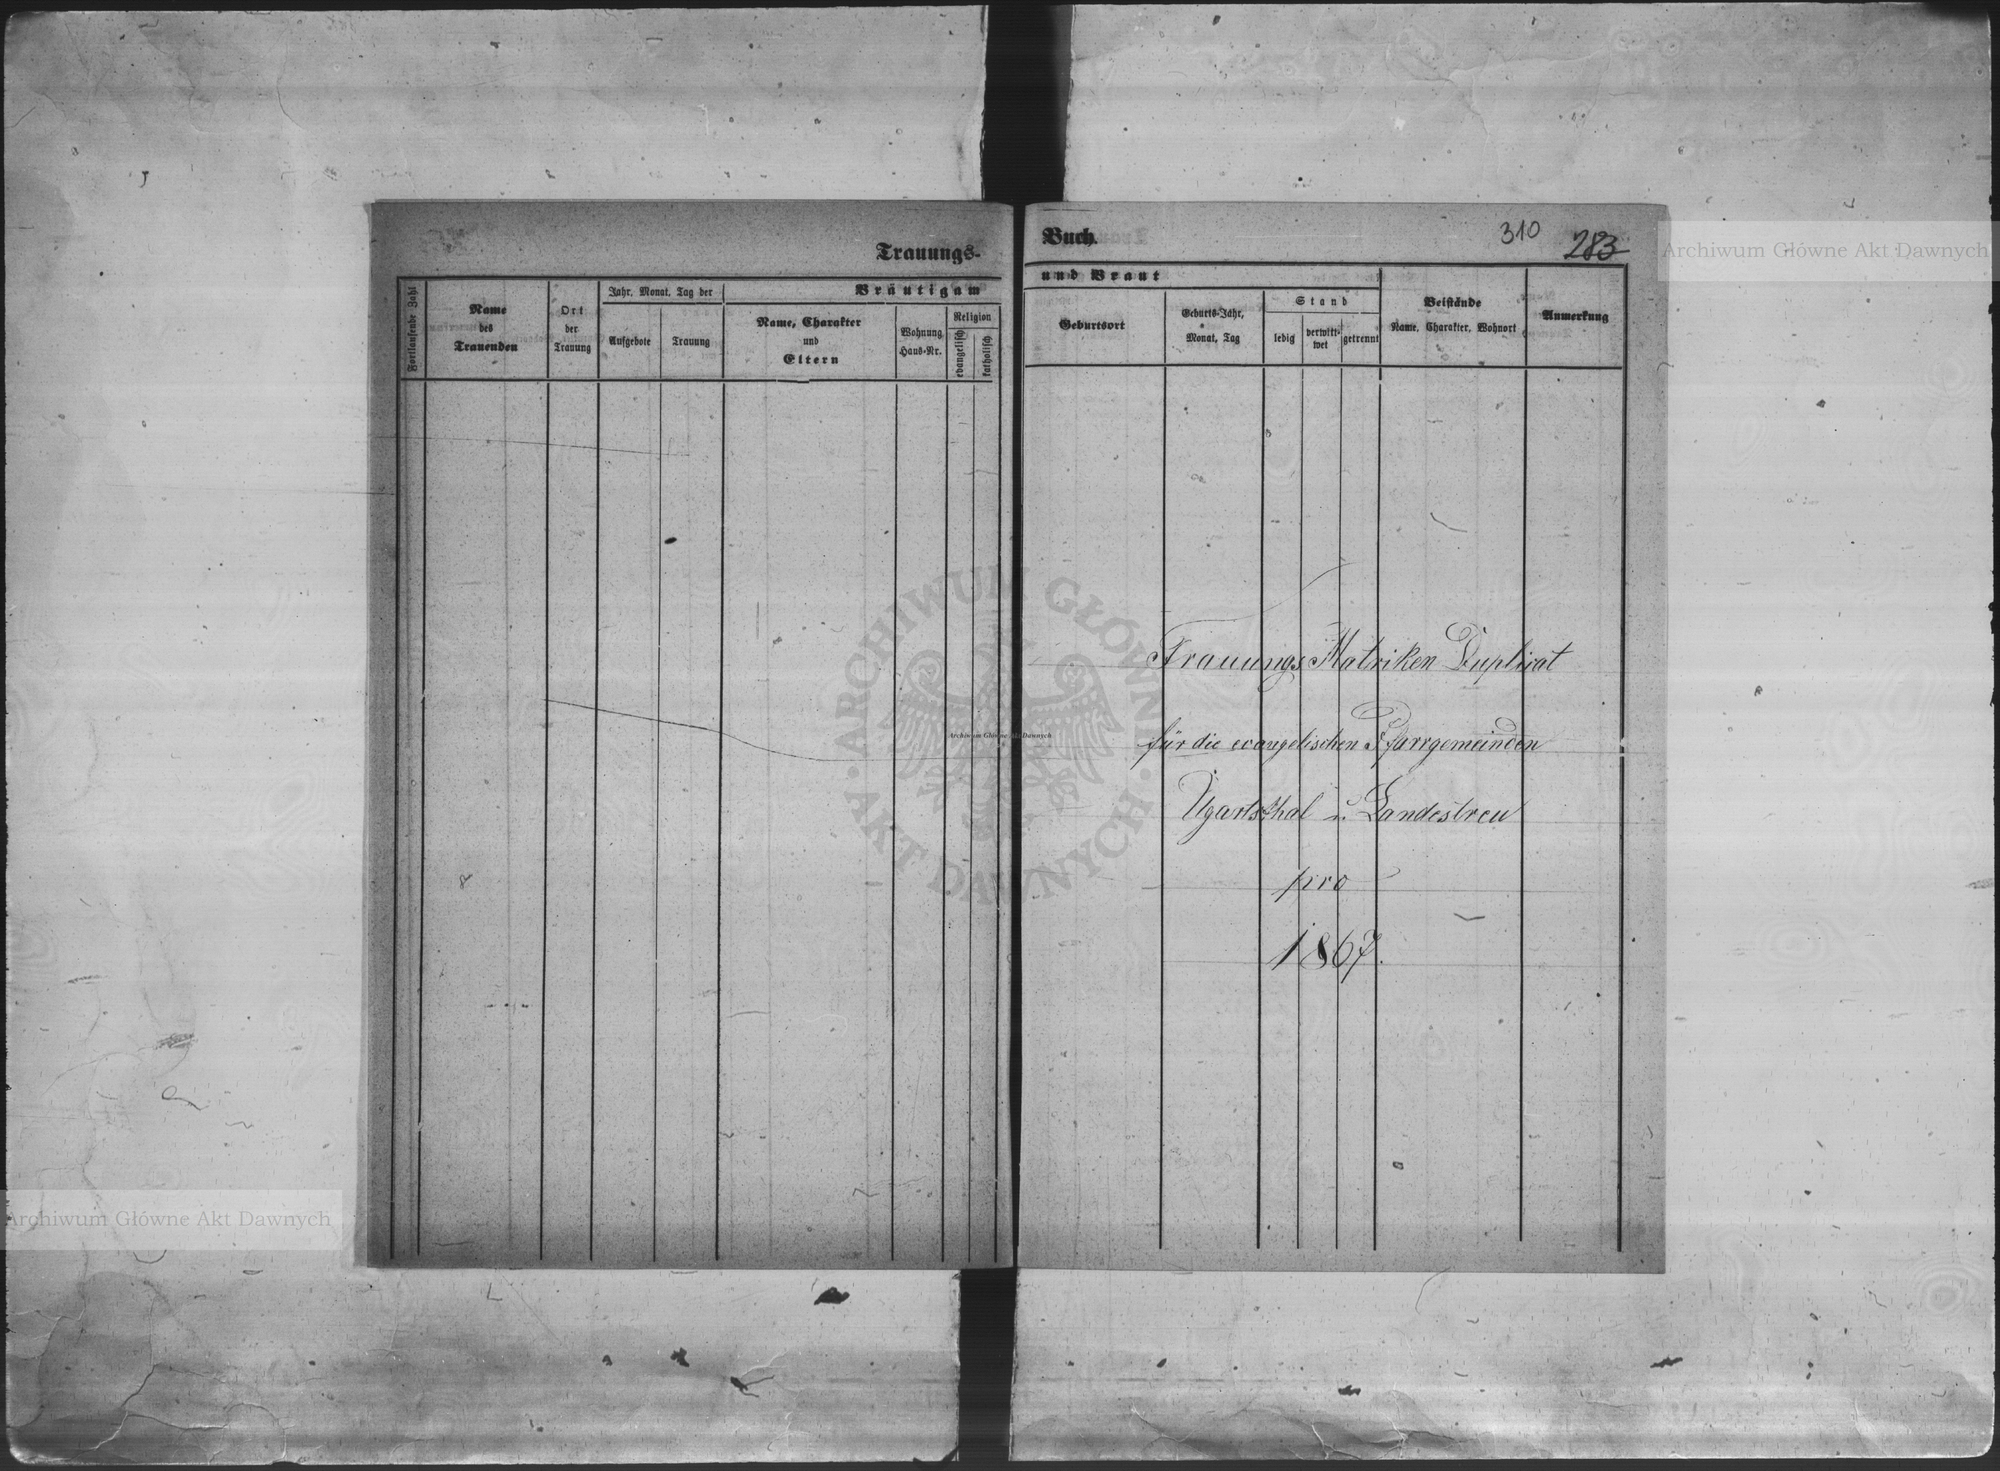 Trauungs-
Fortlaufende Zahl
Name
des
Trauenden
Ort
der
Trauung
Jahr, Monat, Tag der
Aufgebote
Trauung
Bräutigam
Name, Charakter
und
Eltern
Wohnung
Haus-Nr.
Religion
evangelisch
katholisch
Buch.
310
283
und Braut
Geburtsort
Geburts-Jahr,
Monat, Tag
Stand
ledig
verwitt-
wet
getrennt
Beistände
Name, Charakter, Wohnort
Anmerkung
Trauungs Matriken Duplicat
für die evangelischen Pfarrgemeinden
Ugartsthal u. Landestreu
pro
1867.
ARCHIWUM GŁÓWNE
AKT DAWNYCH
Archiwum Główne Akt Dawnych
Archiwum Główne Akt Dawnych
Archiwum Główne Akt Dawnych